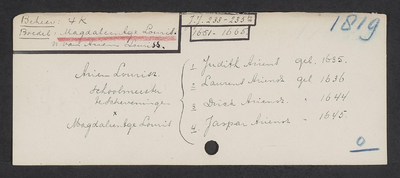 Beheer: 4 K
Boedel: Magdalentge Louris.
I.I. 233-233½
1651-1665
1819
Arien Louriss.
Schoolmeester
te Scheveningen
x
Magdalentge Louris
1 Judith Ariens geb. 1635.
2 Laurens Ariens geb 1636
3 Dirck Ariens. " 1644
4 Jaspar Ariens - 1645.
0